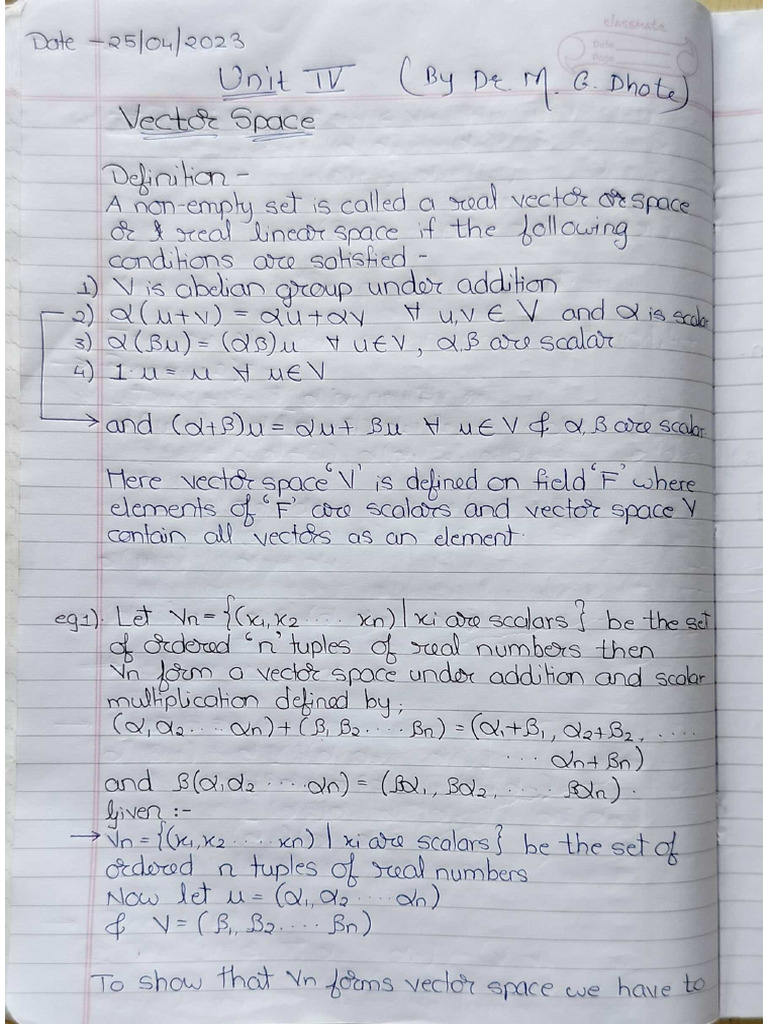 classmate
Date
Page
Date - 25/04/2023
Unit IV (By Dr M. G. Dhote)
Vector Space
Definition -
A non-empty set is called a real vector or space
or real linear space if the following
conditions are satisfied -
1) V is abelian group under addition
2) α(u+v) = αu+αv ∀ u,v ∈ V and α is scalar
3) α(βu) = (αβ)u ∀ u∈V, α,β are scalar
4) 1·u = u ∀ u∈V
→ and (α+β)u = αu + βu ∀ u∈V & α,β are scalar
Here vector space 'V' is defined on field 'F' where
elements of 'F' are scalars and vector space V
contain all vectors as an element.
eg1). Let Vn = {(x1,x2 .... xn) | xi are scalars} be the set
of ordered 'n' tuples of real numbers then
Vn form a vector space under addition and scalar
multiplication defined by;
(α1α2 .... αn) + (β1 β2 .... βn) = (α1+β1, α2+β2, ....
... αn+βn)
and β(α1α2 .... αn) = (βα1, βα2, .... βαn).
Given :-
→ Vn = {(x1,x2 .... xn) | xi are scalars} be the set of
ordered n tuples of real numbers
Now let u = (α1, α2 .... αn)
& V = (β1, β2 .... βn)
To show that Vn forms vector space we have to